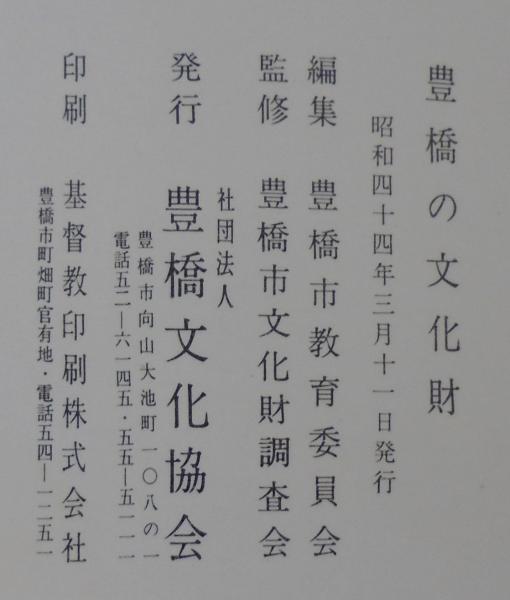 豊橋の文化財
昭和四十四年三月十一日発行
編集 豊橋市教育委員会
監修 豊橋市文化財調査会
社団法人
発行 豊橋文化協会
豊橋市向山大池町一〇八の一
電話五二―六一四五・五五―五一一一
印刷 基督教印刷株式会社
豊橋市町畑町官有地・電話五四―一二五一